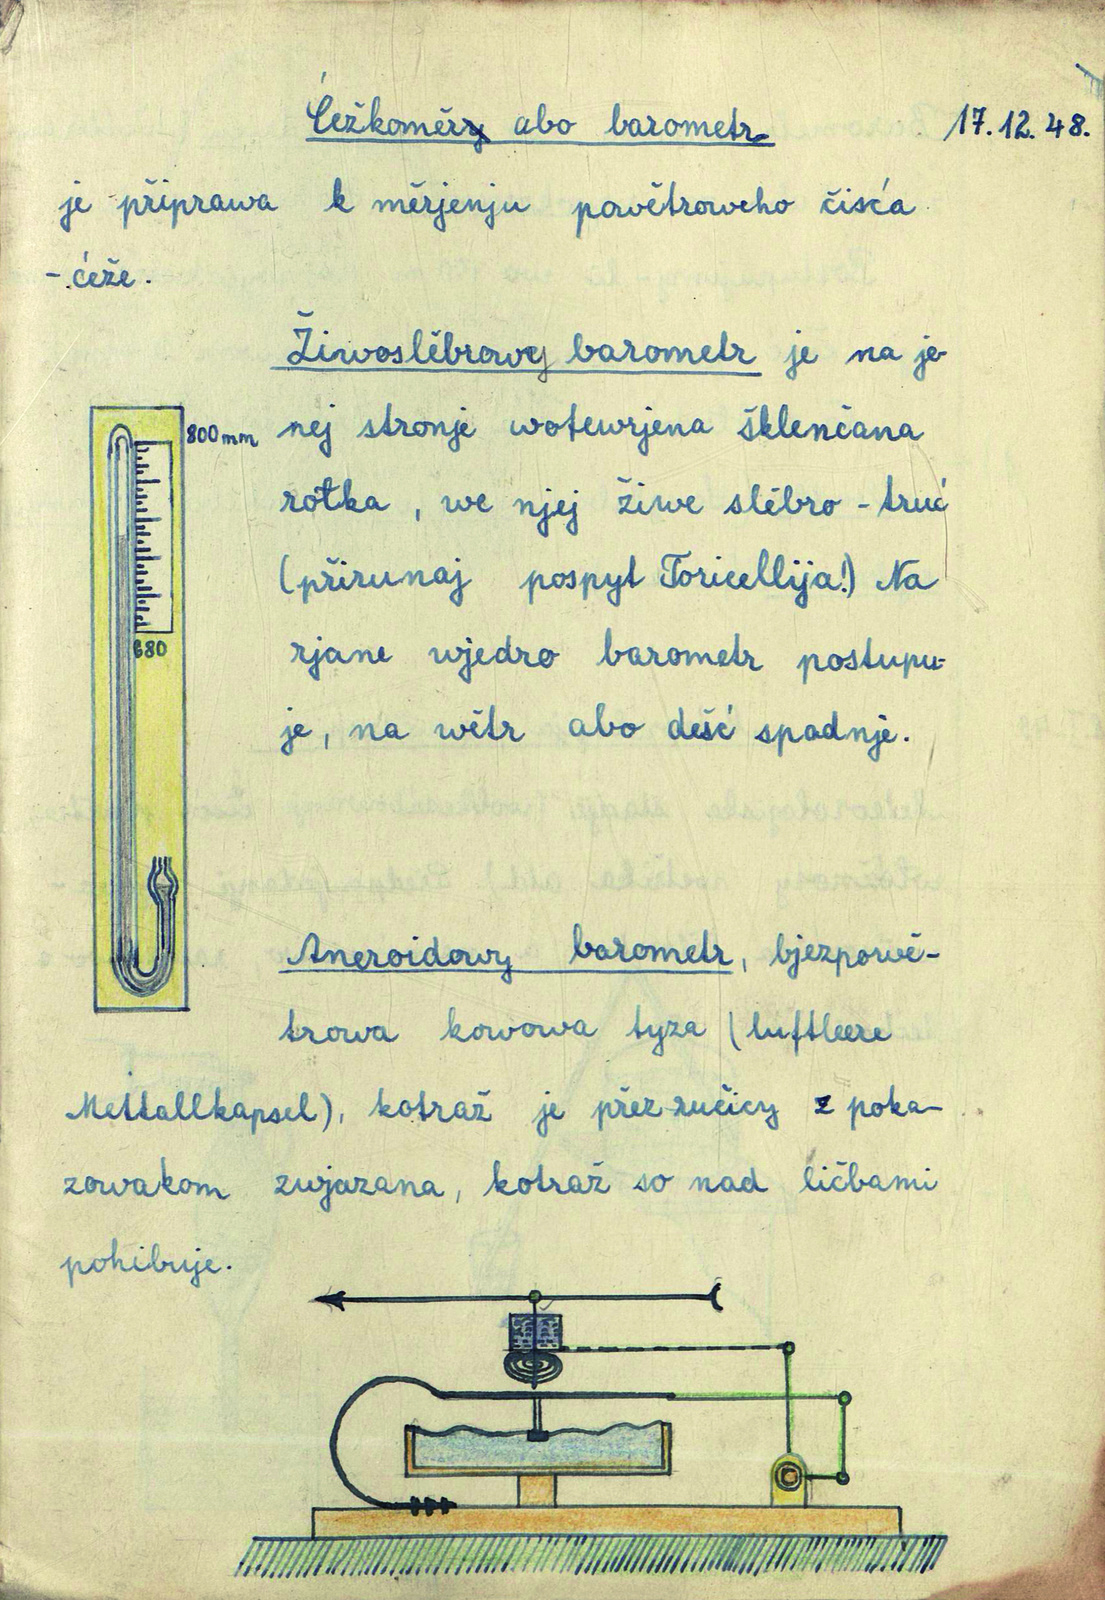 Ćežkoměry abo barometr 17.12.48.
je připrawa k měrjenju powětroweho čišća
- ćeže.
Žiwoslěbrowy barometr je na je-
nej stronje wotewrjena šklenčana
rołka, we njej žiwe slěbro - truć
(přirunaj pospyt Toricellija!) Na
rjane wjedro barometr postupu-
je, na wětr abo dešć spadnje.
800 mm
680
Aneroidowy barometr, bjezpowě-
trowa kowowa tyza (luftleere
Mettallkapsel), kotraž je přez zučicy z poka-
zowakom zwjazana, kotraž so nad ličbami
pohibuje.